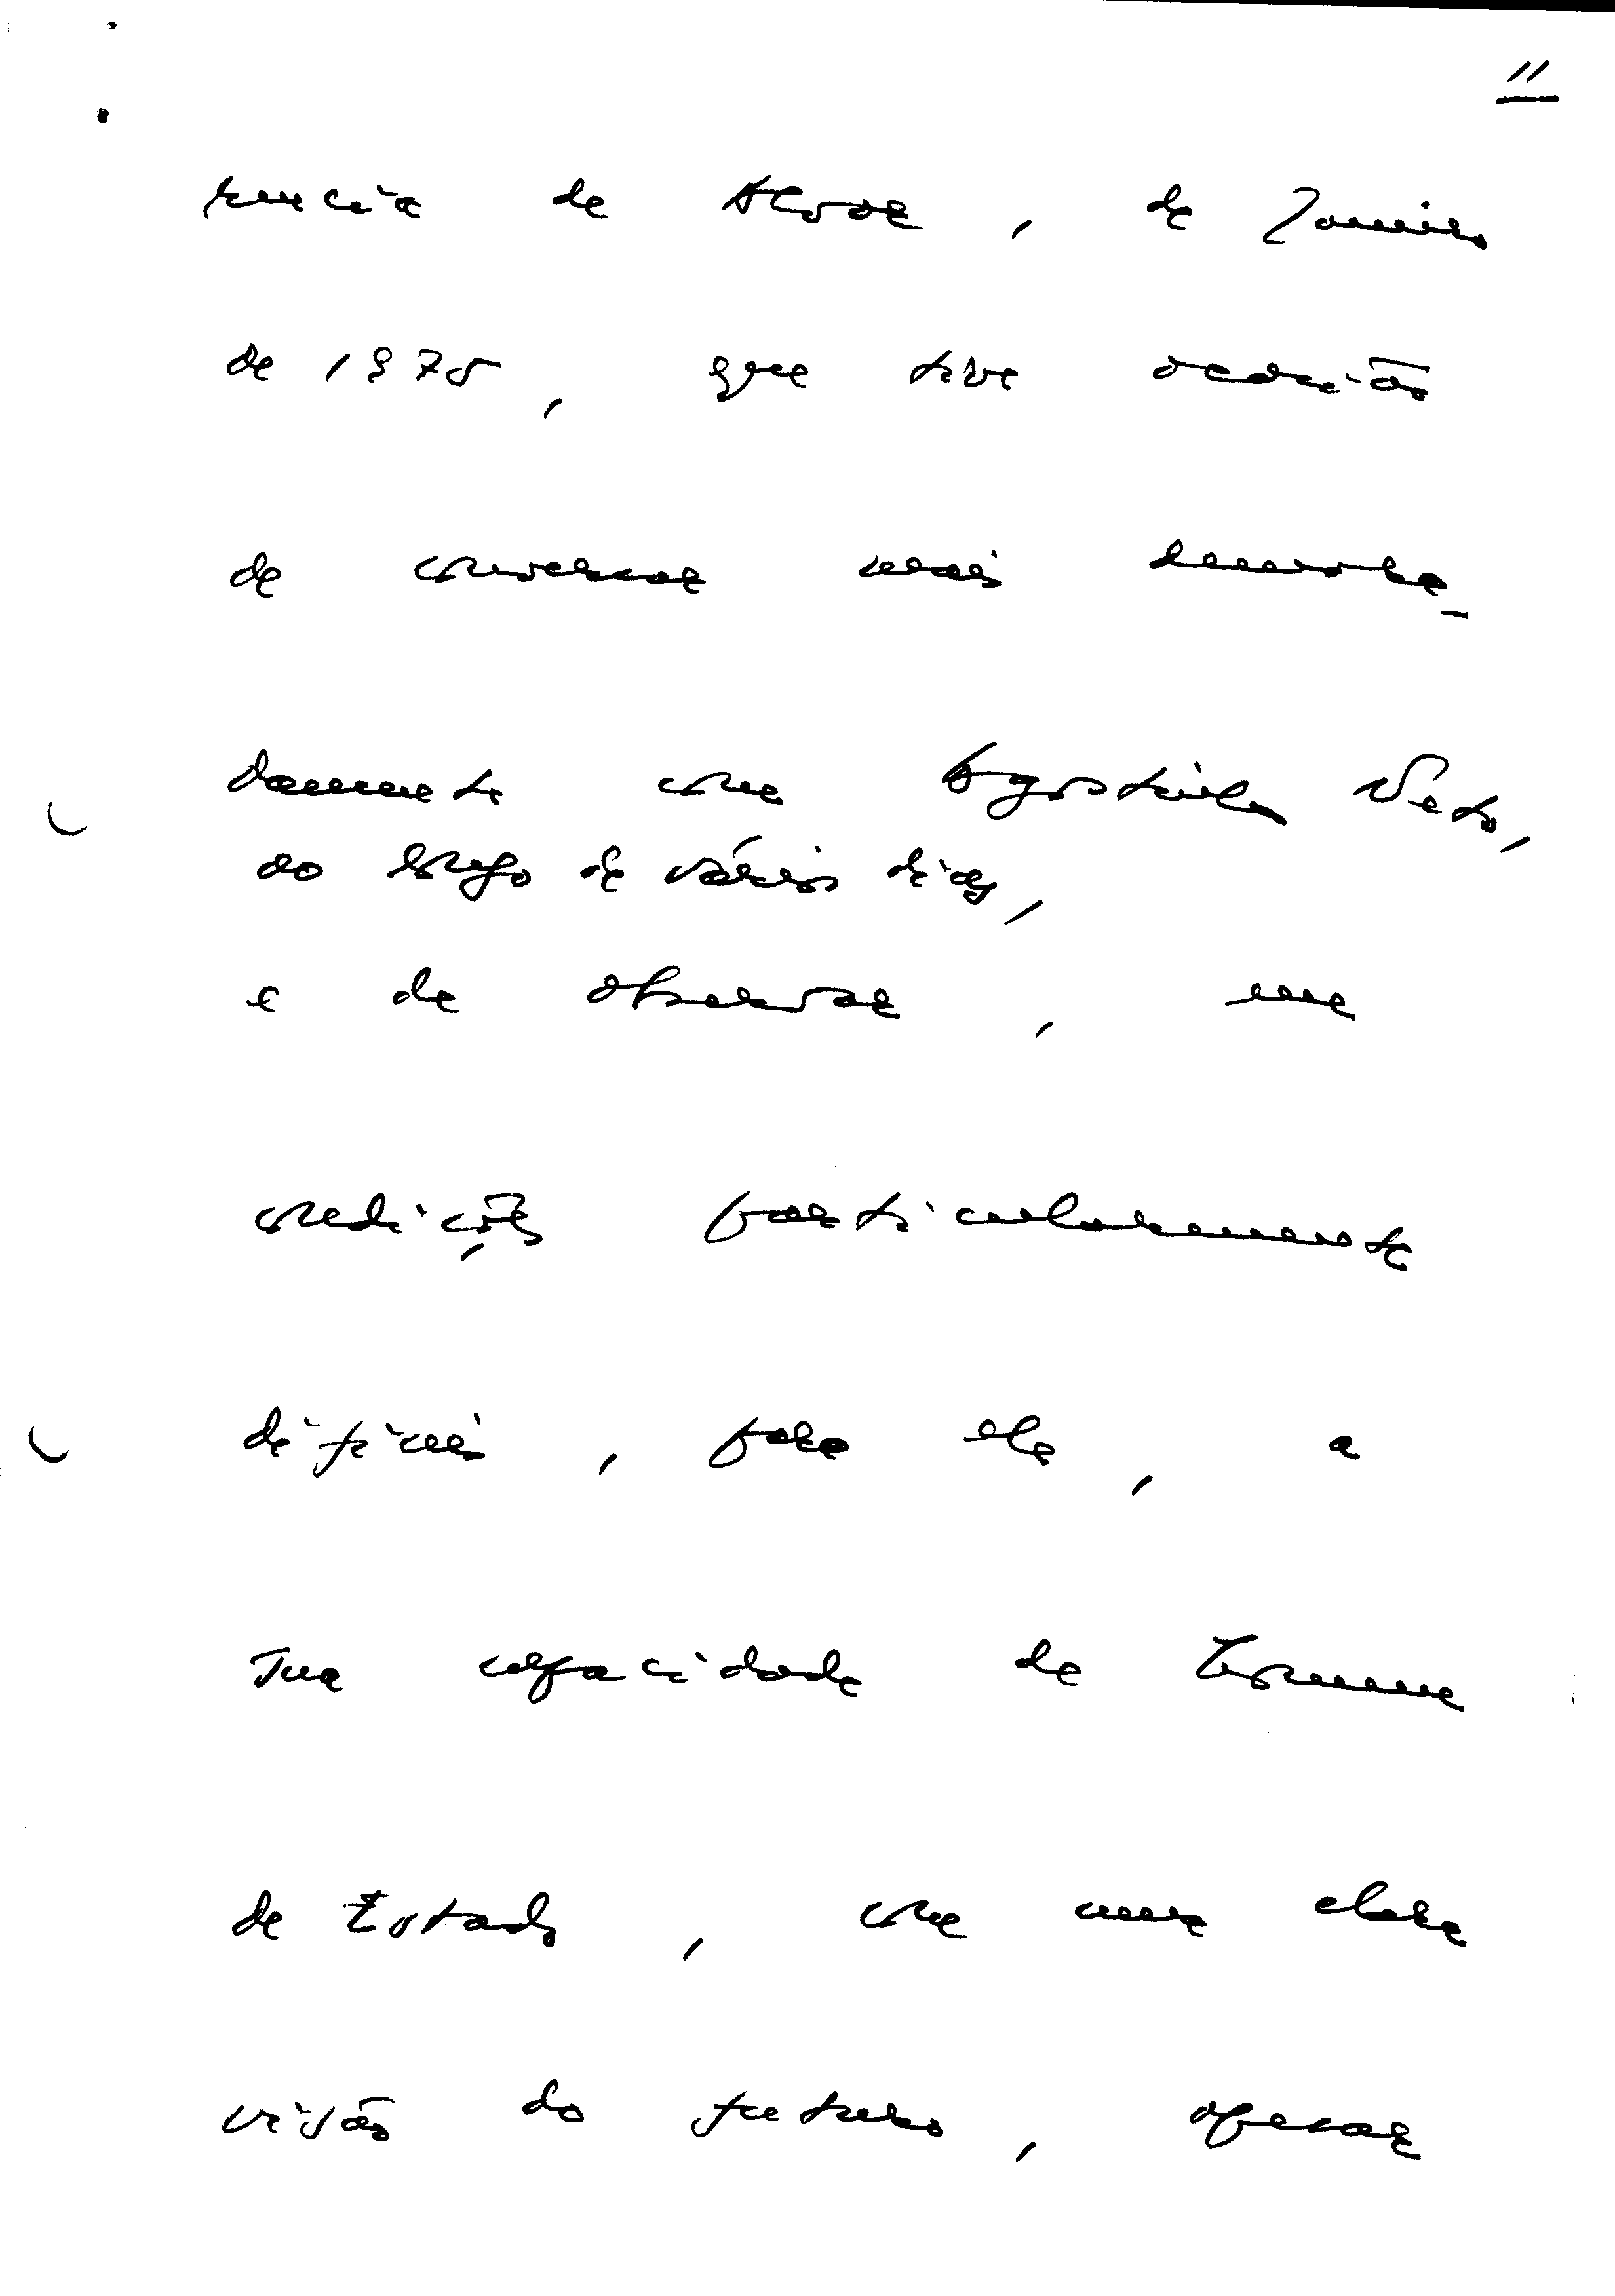 11
rência de Alvor, de Janeiro
de 1975, que tive ocasião
de conversar mais demora-
damente com Agostinho Neto,
ao longo de vários dias,
e de observar, em
condições particularmente
difíceis, para ele, a
sua capacidade de homem
de Estado, com uma clara
visão do futuro, apesar